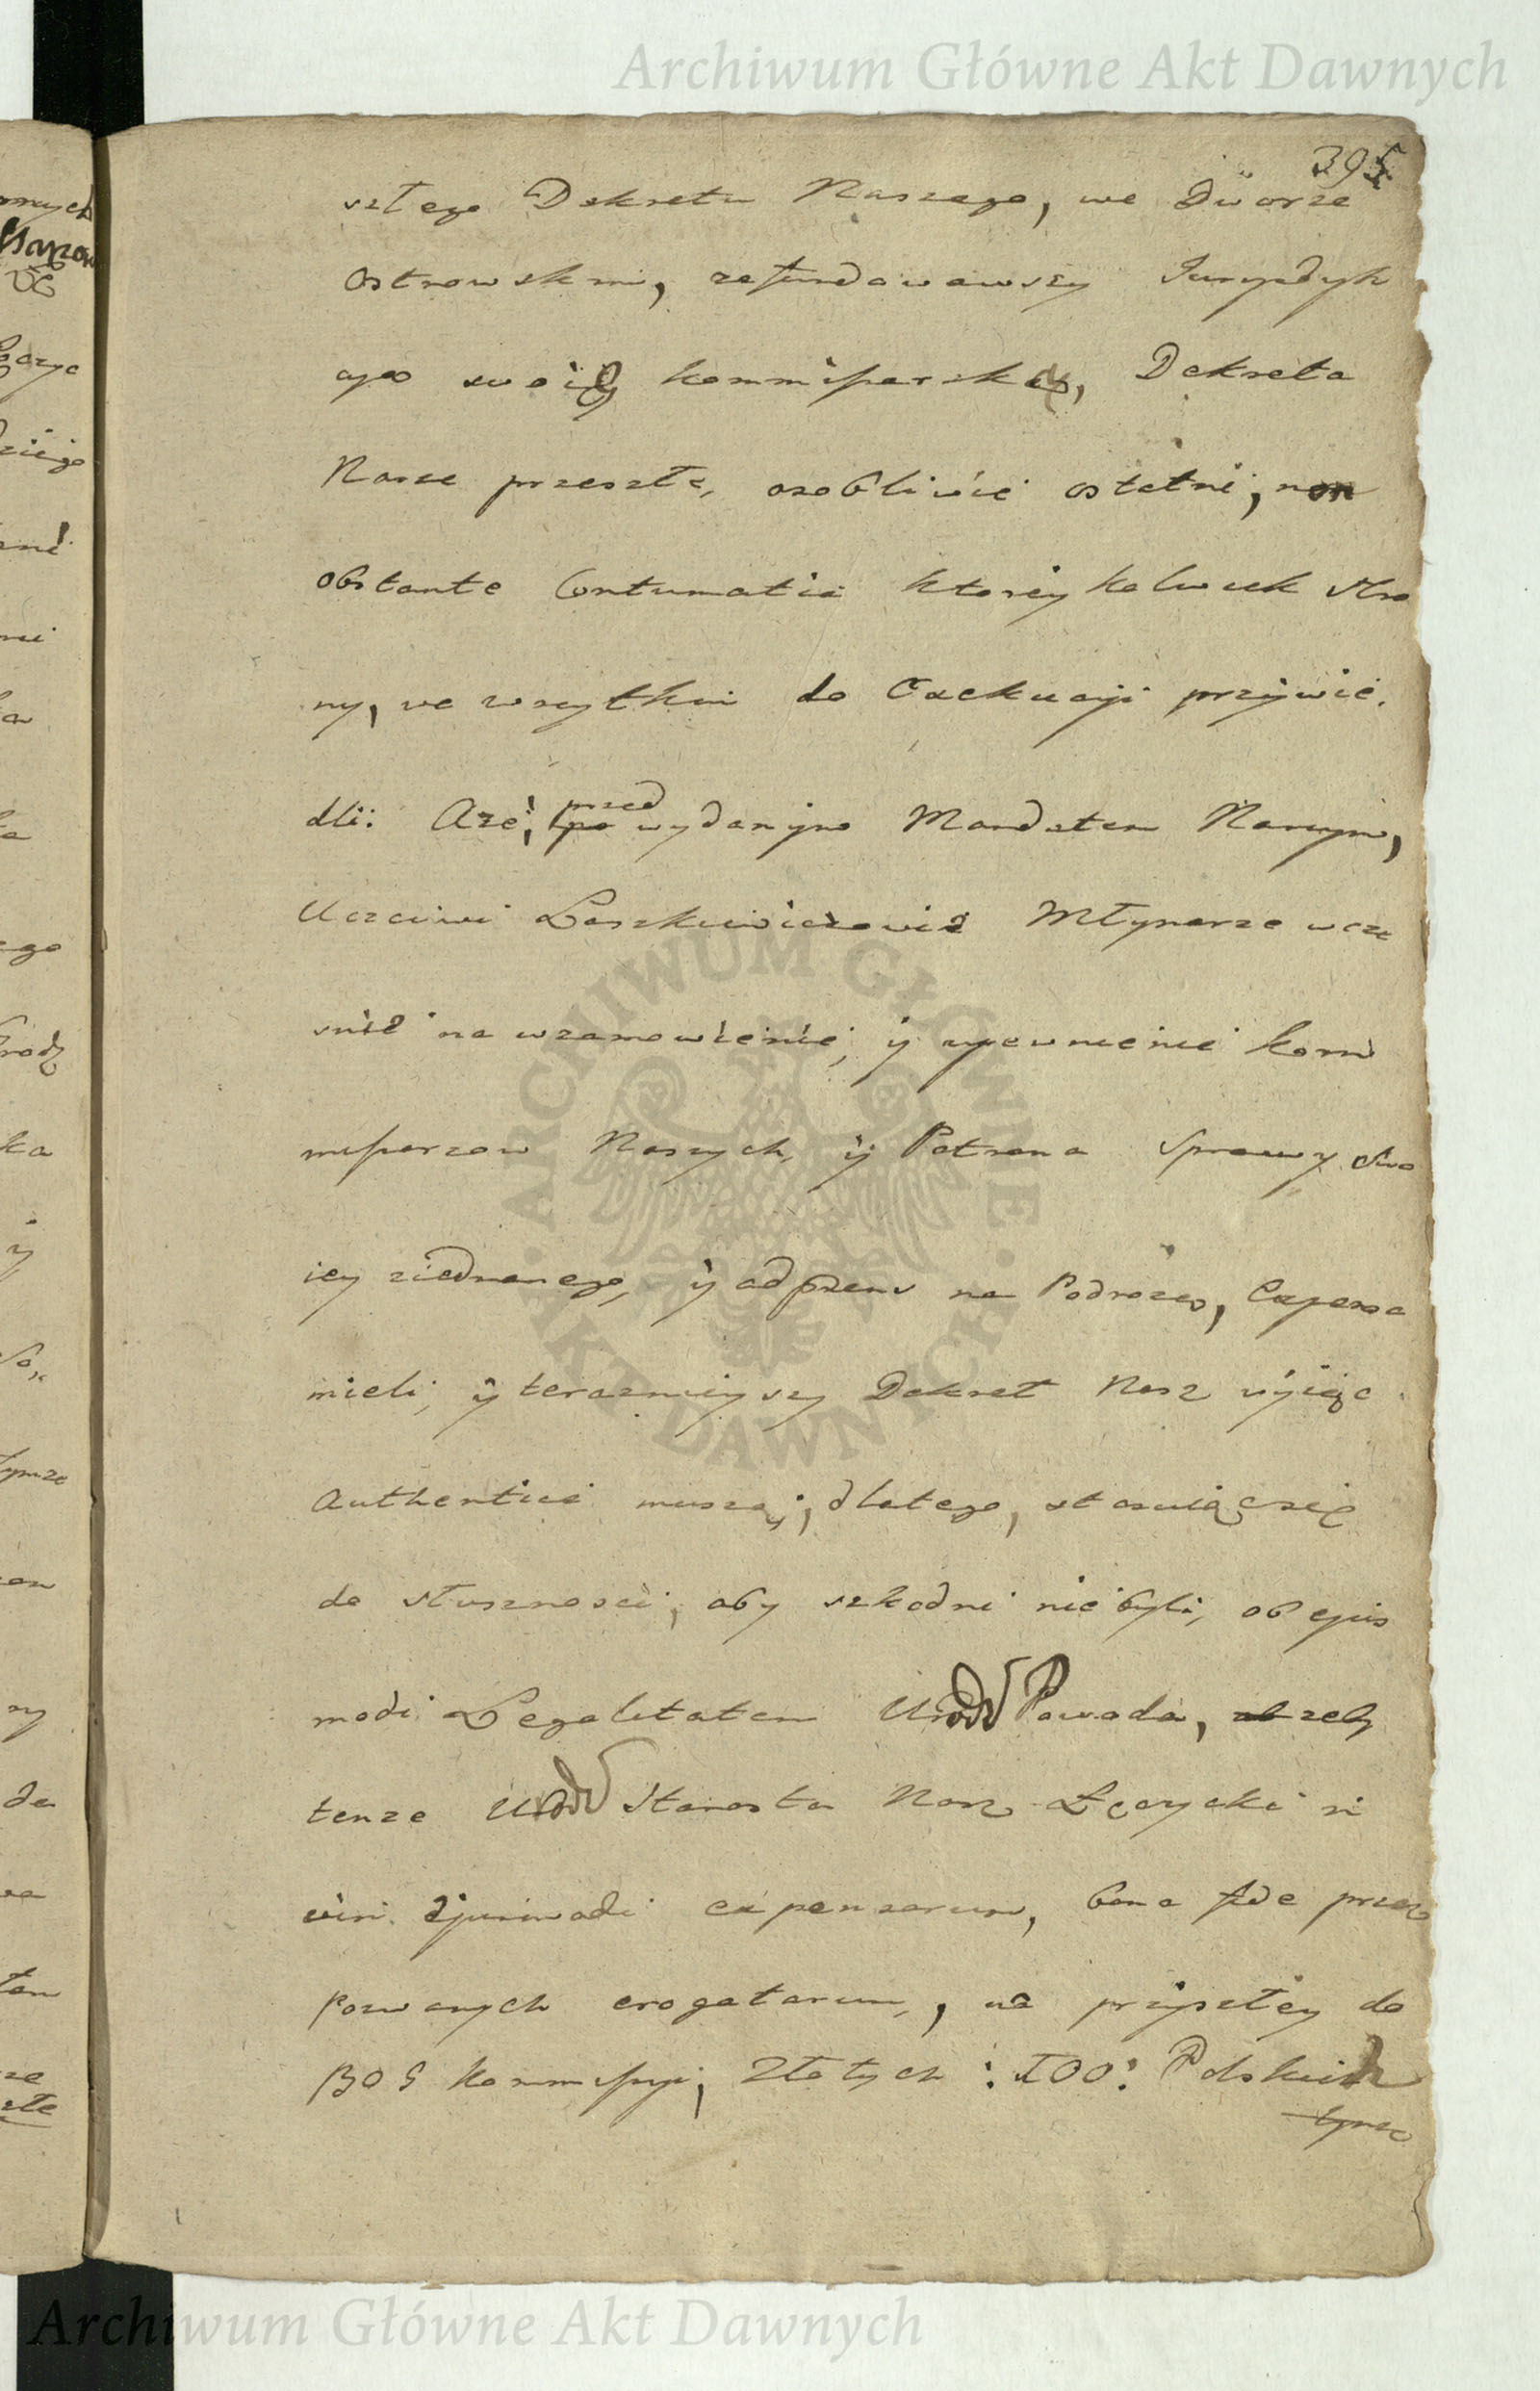 Archiwum Główne Akt Dawnych
395
szłego Dekretu Naszego, we Dworze
Ostrowskim, zafundowawszy Juryzdyk
cyą swoię kommissarską, Dekreta
Nasze przeszłe, osobliwie ostatni, non
obstante Contumatia ktoreykolwiek stro
ny, we wszytkim do Exekucyi przywie.
dli: Aże, przed wydanym Mandatem Naszym,
Uczciwi Laszkiewiczowie Młynarze wcze
snie na wzamowienie, y upewnienie kom
missarzow Naszych, y Patrona Sprawy swo
iey ziednanego, y od Pzenu na Podroze, Expensa
mieli, y teraznieyszy Dekret Nasz wyiąc
Authentice muszą, dlatego, stosuiąc się
do słusznosci, aby szkodni nie byli, ob ejus
modi Legalitatem Urodz Powoda, zeby
tenze Urodz Starosta Nasz Łęczycki in
vim ejusmodi expensarum, bona fide przez
Pozwanych erogatarum, na przyszłey da
BOG Kommissyi, Złotych : 100: Polskich
tymze
ARCHIWUM GŁÓWNE AKT DAWNYCH
Archiwum Główne Akt Dawnych